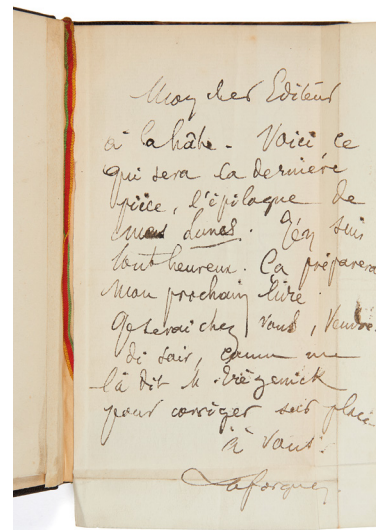 Mon cher Editeur
à la hâte. Voici ce
qui sera la dernière
pièce, l'épilogue de
mes Lunes. J'en suis
tout heureux. Ça préparera
mon prochain livre.
Je serai chez vous, Vendre-
di soir, comme me
l'a dit M. Viézenick
pour corriger sur place.
à vous.
Laforgue.